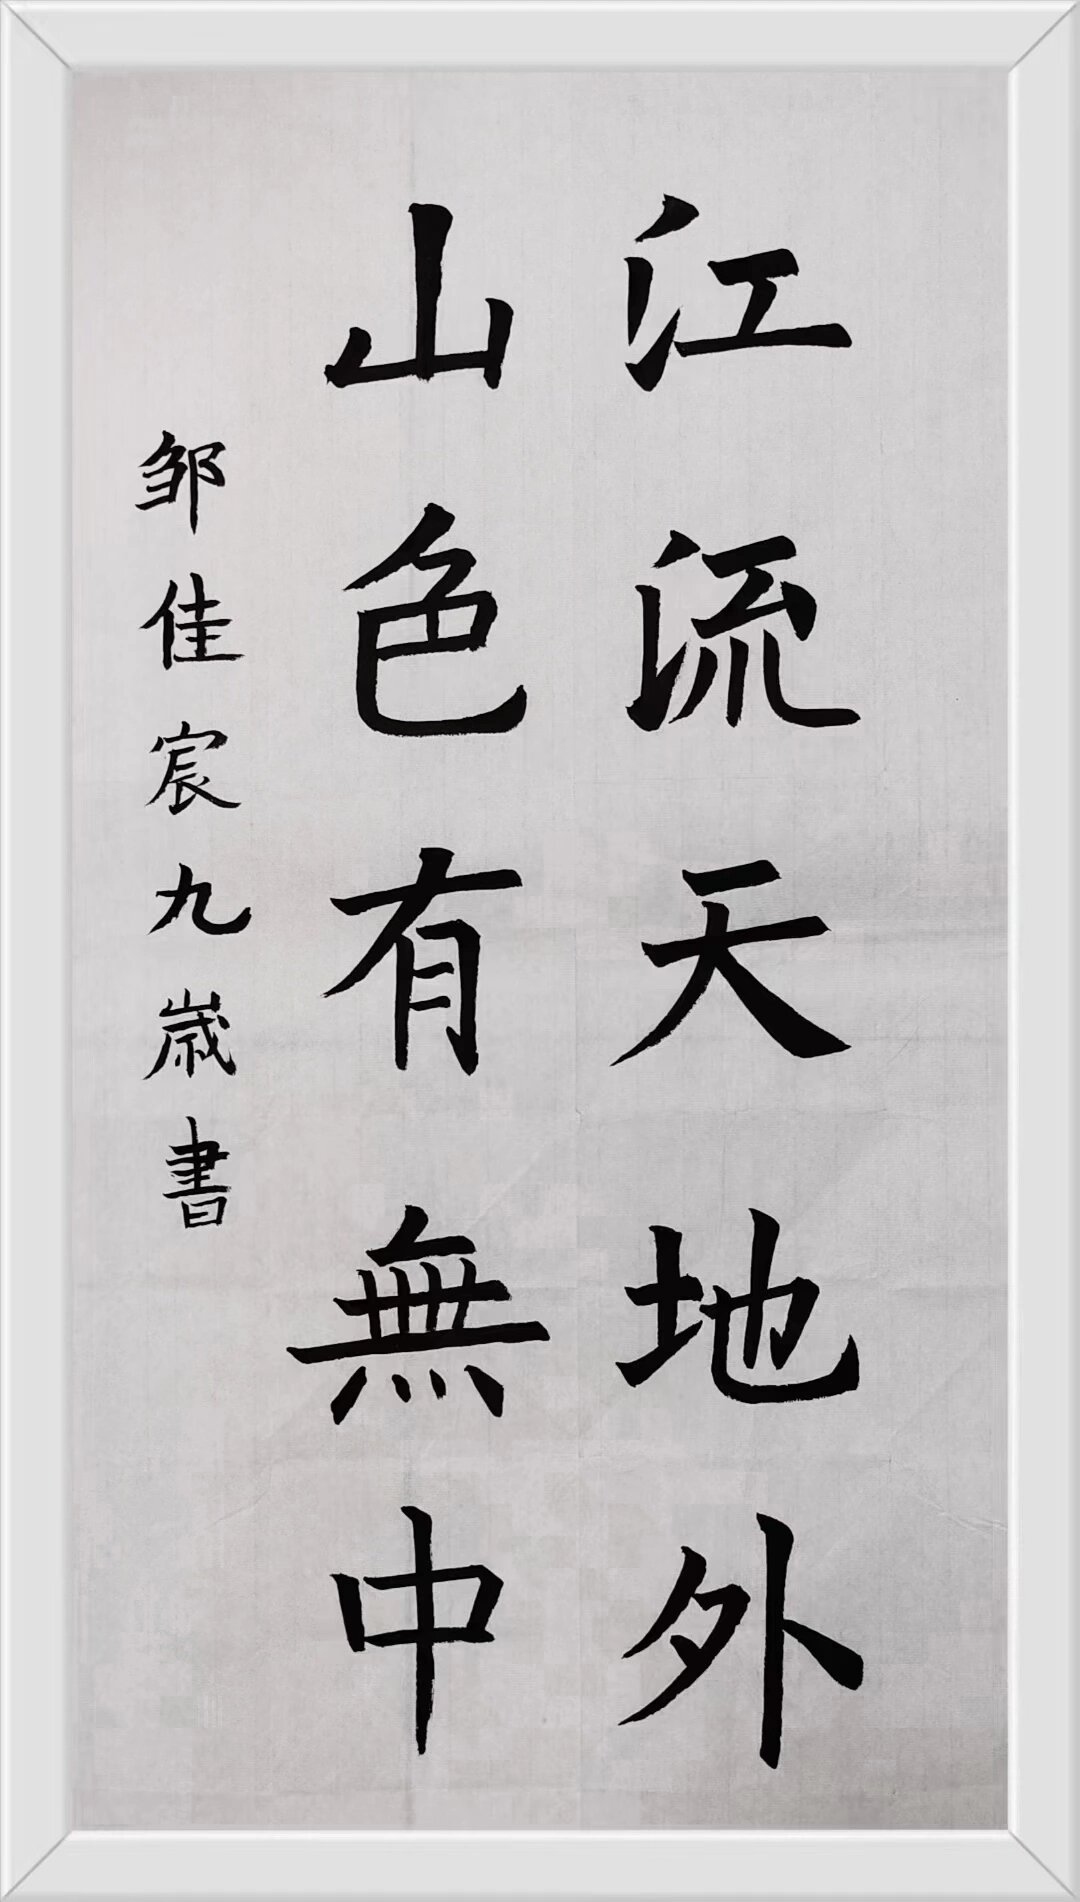 江流天地外
山色有無中
邹佳宸九歳書